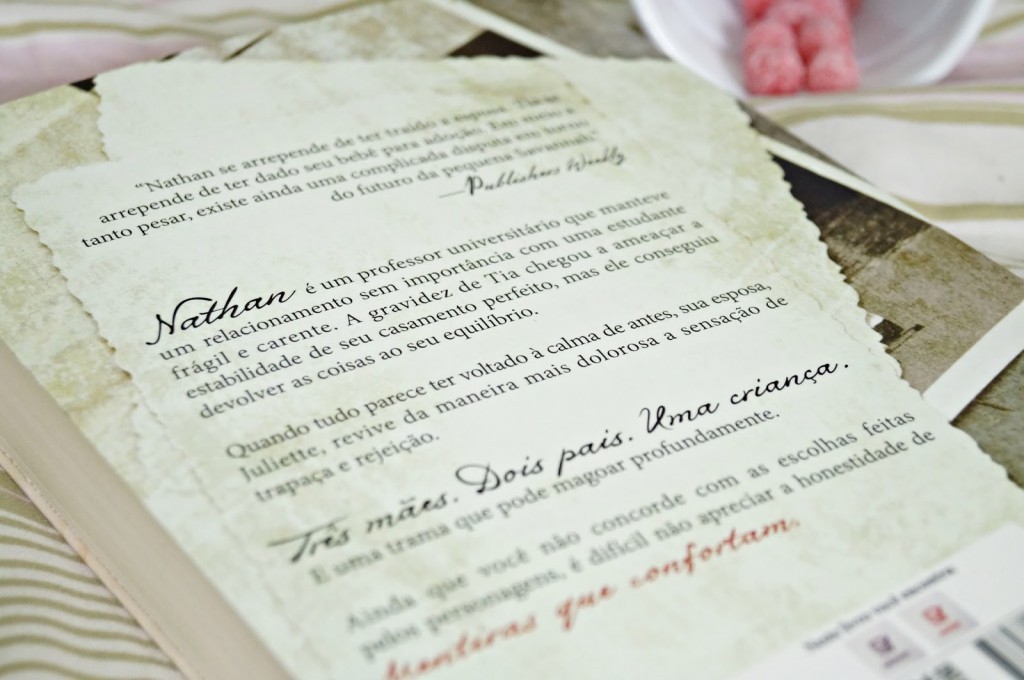 “Nathan se arrepende de ter traído a esposa. Tia se
arrepende de ter dado seu bebê para adoção. Em meio a
tanto pesar, existe ainda uma complicada disputa em torno
do futuro da pequena Savannah.”
—Publishers Weekly
Nathan é um professor universitário que manteve
um relacionamento sem importância com uma estudante
frágil e carente. A gravidez de Tia chegou a ameaçar a
estabilidade de seu casamento perfeito, mas ele conseguiu
devolver as coisas ao seu equilíbrio.
Quando tudo parece ter voltado à calma de antes, sua esposa,
Juliette, revive da maneira mais dolorosa a sensação de
trapaça e rejeição.
Três mães. Dois pais. Uma criança.
E uma trama que pode magoar profundamente.
Ainda que você não concorde com as escolhas feitas
pelos personagens, é difícil não apreciar a honestidade de
Mentiras que confortam.